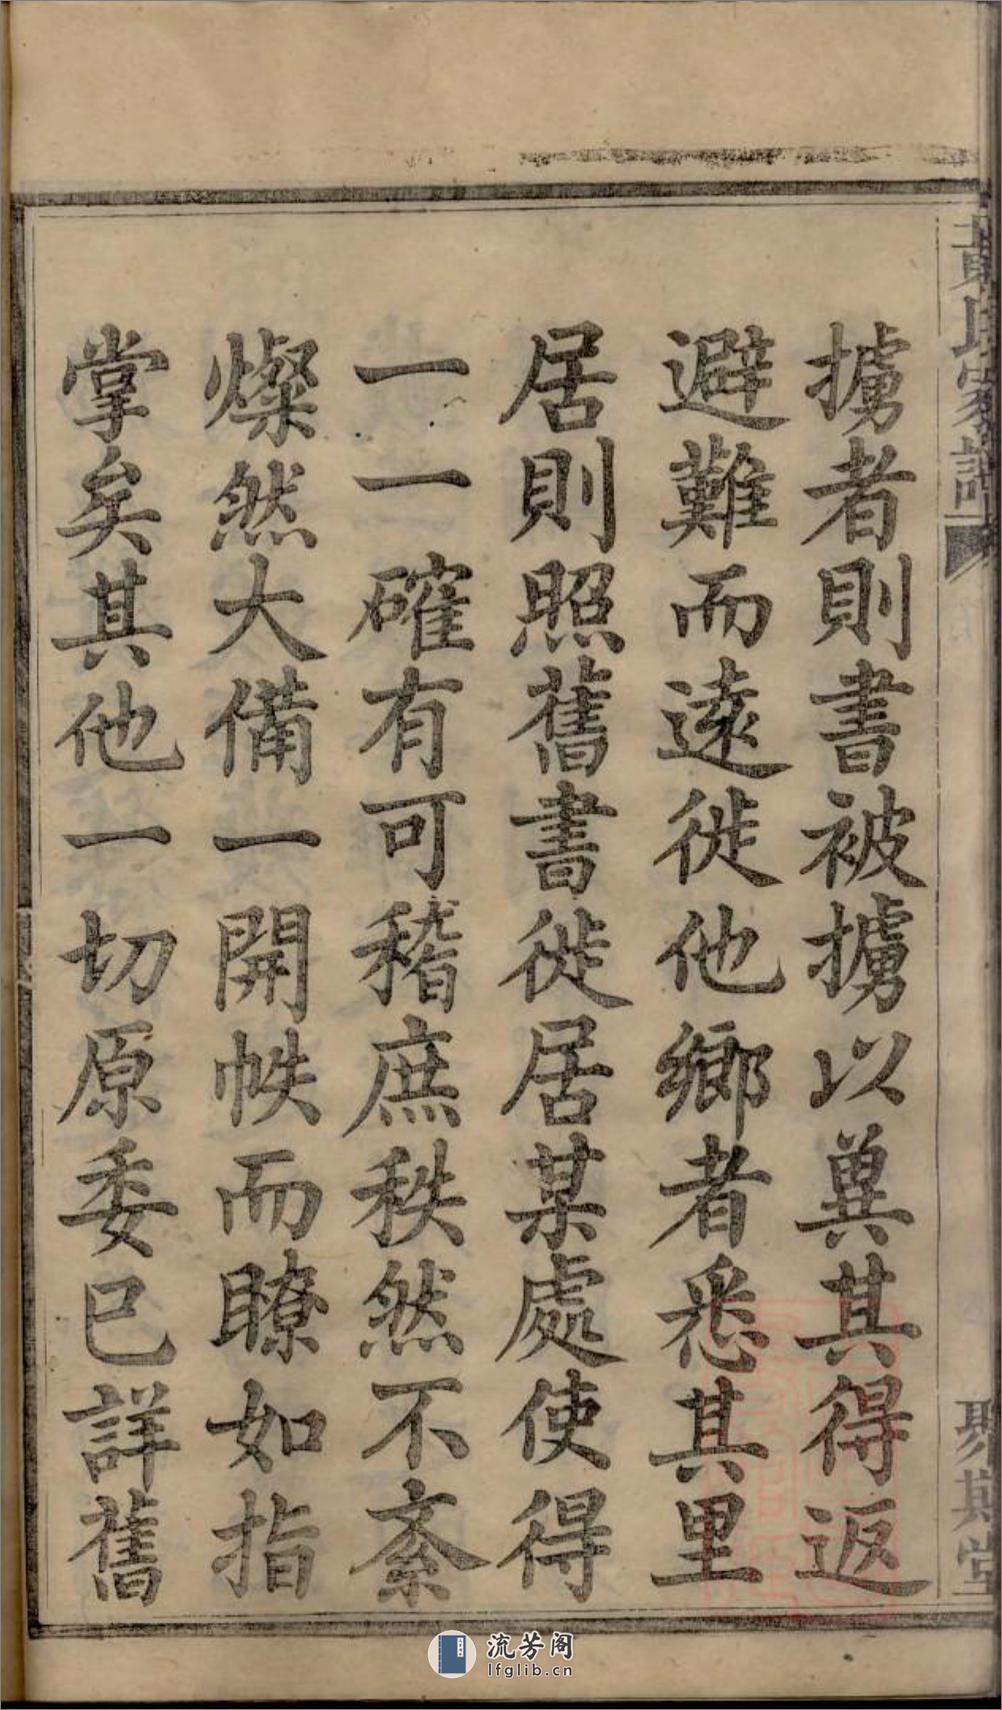 擄者則書被擄以冀其得返
避難而遠徙他鄉者悉其里
居則照舊書徙居某處使得
一一確有可稽庶秩然不紊
燦然大備一開帙而瞭如指
掌矣其他一切原委已詳舊
氏家譜
聚其堂
流芳阁
lfglib.cn